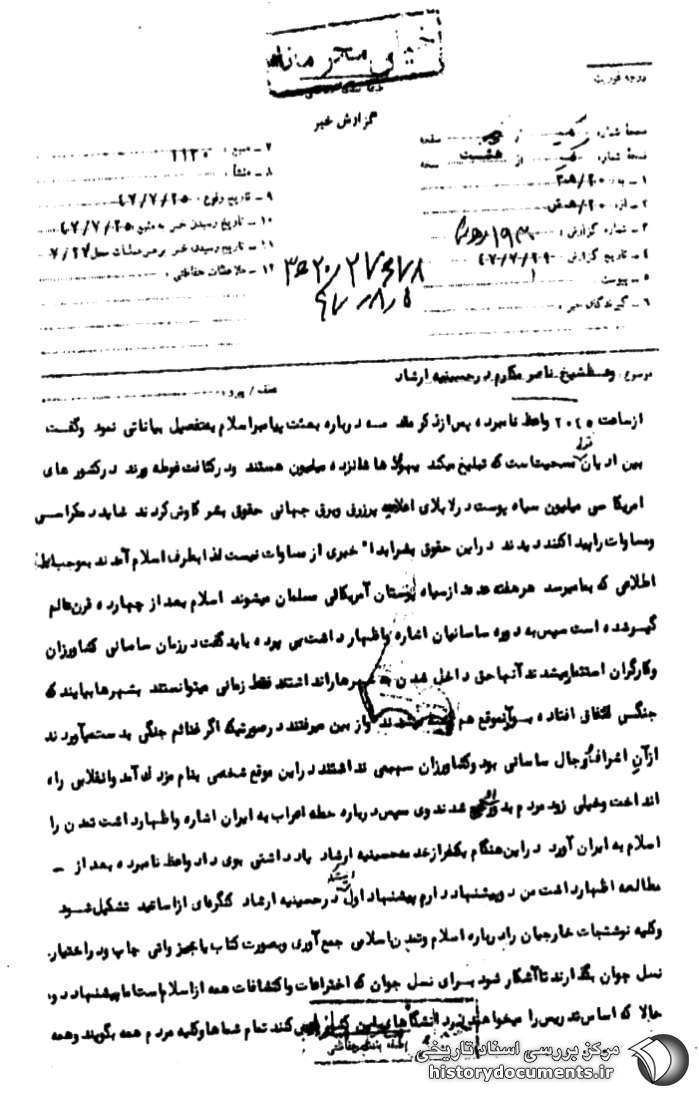 خیلی محرمانه
درجه فوریت
گزارش خبر
نسخه شماره از هشت نسخه
۱ـ به: ۲۰/ه۳
۲ـ از: ۲۰/ه ش
۳ـ شماره گزارش:
۴ـ تاریخ گزارش
۵ـ پیوست
۶ـ گیرندگان خبر:
۷ـ منبع: ۱۱۲۰
۸ـ منشأ:
۹ـ تاریخ وقوع ۴۷/۷/۲۵
۱۰ـ تاریخ رسیدن خبر به منبع ۴۷/۷/۲۵
۱۱ـ تاریخ رسیدن خبر به رهبر عملیات محل ۷/۲۷
۱۲ـ ملاحظات حفاظتی:
موضوع: وعظ شیخ ناصر مکارم در حسینیه ارشاد
از ساعت ۲۰۴۵ واعظ نامبرده پس از ذکر مقدمه درباره بعثت پیامبر اسلام بتفصیل بیاناتی نمود و گفت
بین ادیان مسیحیت است که تبلیغ میکند یهودیها شانزده میلیون هستند و در کثافت غوطه ورند در کشورهای
امریکا سی میلیون سیاه پوست در لابلای اعلامیه پرزرق وبرق جهانی حقوق بشر کاوش کردند شاید دمکراسی
ومساوات را پیدا کنند دیدند در این حقوق بشر ابدا" خبری از مساوات نیست لذا بطرف اسلام آمدند بموجب
اطلاعی که بما میرسد هر هفته عده ای از سیاه پوستان آمریکائی مسلمان میشوند اسلام بعد از چهارده قرن عالم
گیر شده است سپس به دوره ساسانیان اشاره و اظهار داشت پی پرده باید گفت در زمان ساسانی کشاورزان
وکارگران استثمار میشدند آنها حق داخل شدن به شهرها را نداشتند فقط زمانی میتوانستند بشهرها بیایند که
جنگی اتفاقی افتاده و آنموقع هم میشدند و از بین میرفتند در صورتیکه اگر غنائم جنگی بدست میآوردند
از آن اشراف و رجال ساسانی بود و کشاورزان سهمی نداشتند در این موقع شخصی بنام مزدک آمد وانقلابی راه
انداخت وخیلی زود مردم بدور او جمع شدند وی سپس درباره حمله اعراب به ایران اشاره و اظهار داشت تمدن را
اسلام به ایران آورد در این هنگام یکنفر از خدمه حسینیه ارشاد یادداشتی بوی داد واعظ نامبرده بعد از ـ
مطالعه اظهار داشت من دو پیشنهاد دارم پیشنهاد اول اینکه در حسینیه ارشاد کنگره ای از اساتید تشکیل شود
وکلیه نوشتجات خارجیان را درباره اسلام وتمدن اسلامی جمع آوری وبصورت کتاب چاپ ودر اختیار
نسل جوان بگذارند تا آشکار شود برای نسل جوان که اختراعات واکتشافات همه از اسلام است اما پیشنهاد دوم
حالا که اساس تدریس را میخواهند در دانشگاههای کنند تمام شماها وکلیه مردم همه بگویند وهمه
خیلی محرمانه
طبقه بندی حفاظتی
مرکز بررسی اسناد تاریخی
historydocuments.ir